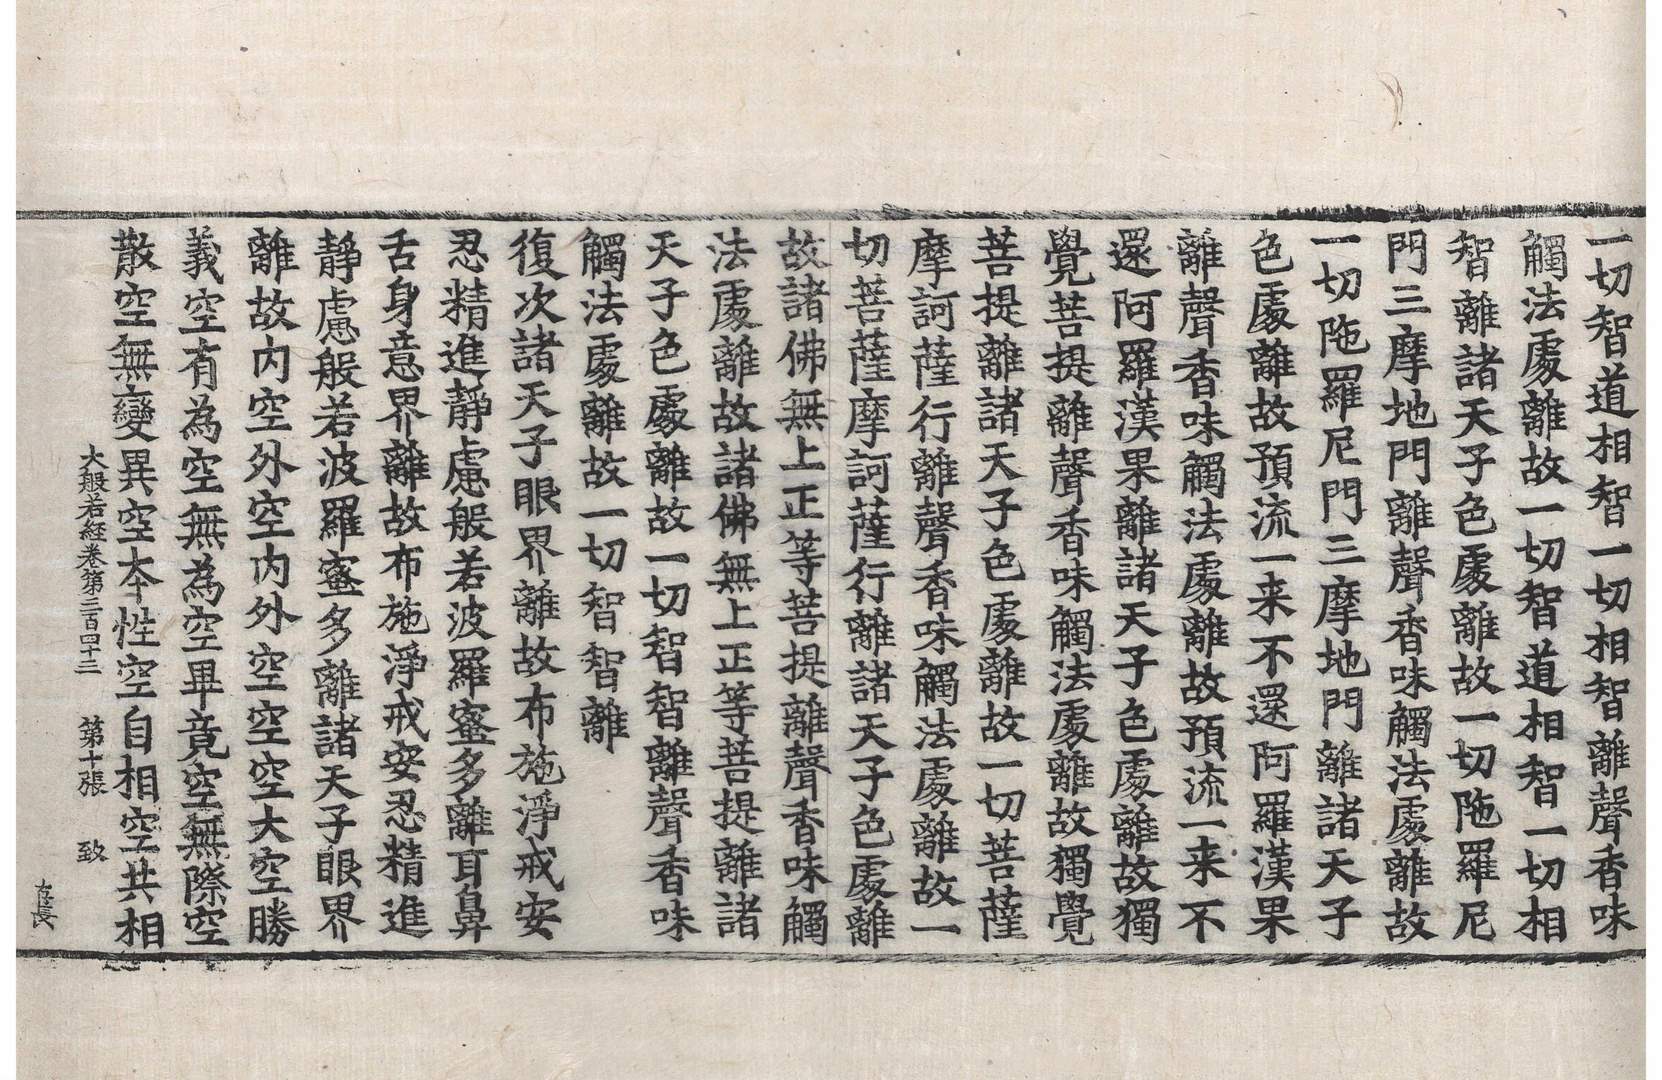 一切智道相智一切相智離聲香味
觸法處離故一切智道相智一切相
智離諸天子色處離故一切陁羅尼
門三摩地門離聲香味觸法處離故
一切陁羅尼門三摩地門離諸天子
色處離故預流一来不還阿羅漢果
離聲香味觸法處離故預流一来不
還阿羅漢果離諸天子色處離故獨
覺菩提離聲香味觸法處離故獨覺
菩提離諸天子色處離故一切菩薩
摩訶薩行離聲香味觸法處離故一
切菩薩摩訶薩行離諸天子色處離
故諸佛無上正等菩提離聲香味觸
法處離故諸佛無上正等菩提離諸
天子色處離故一切智智離聲香味
觸法處離故一切智智離
復次諸天子眼界離故布施淨戒安
忍精進靜慮般若波羅蜜多離耳鼻
舌身意界離故布施淨戒安忍精進
靜慮般若波羅蜜多離諸天子眼界
離故内空外空内外空空空大空勝
義空有為空無為空畢竟空無際空
散空無變異空夲性空自相空共相
大般若經卷第三百四十三 第十張 致